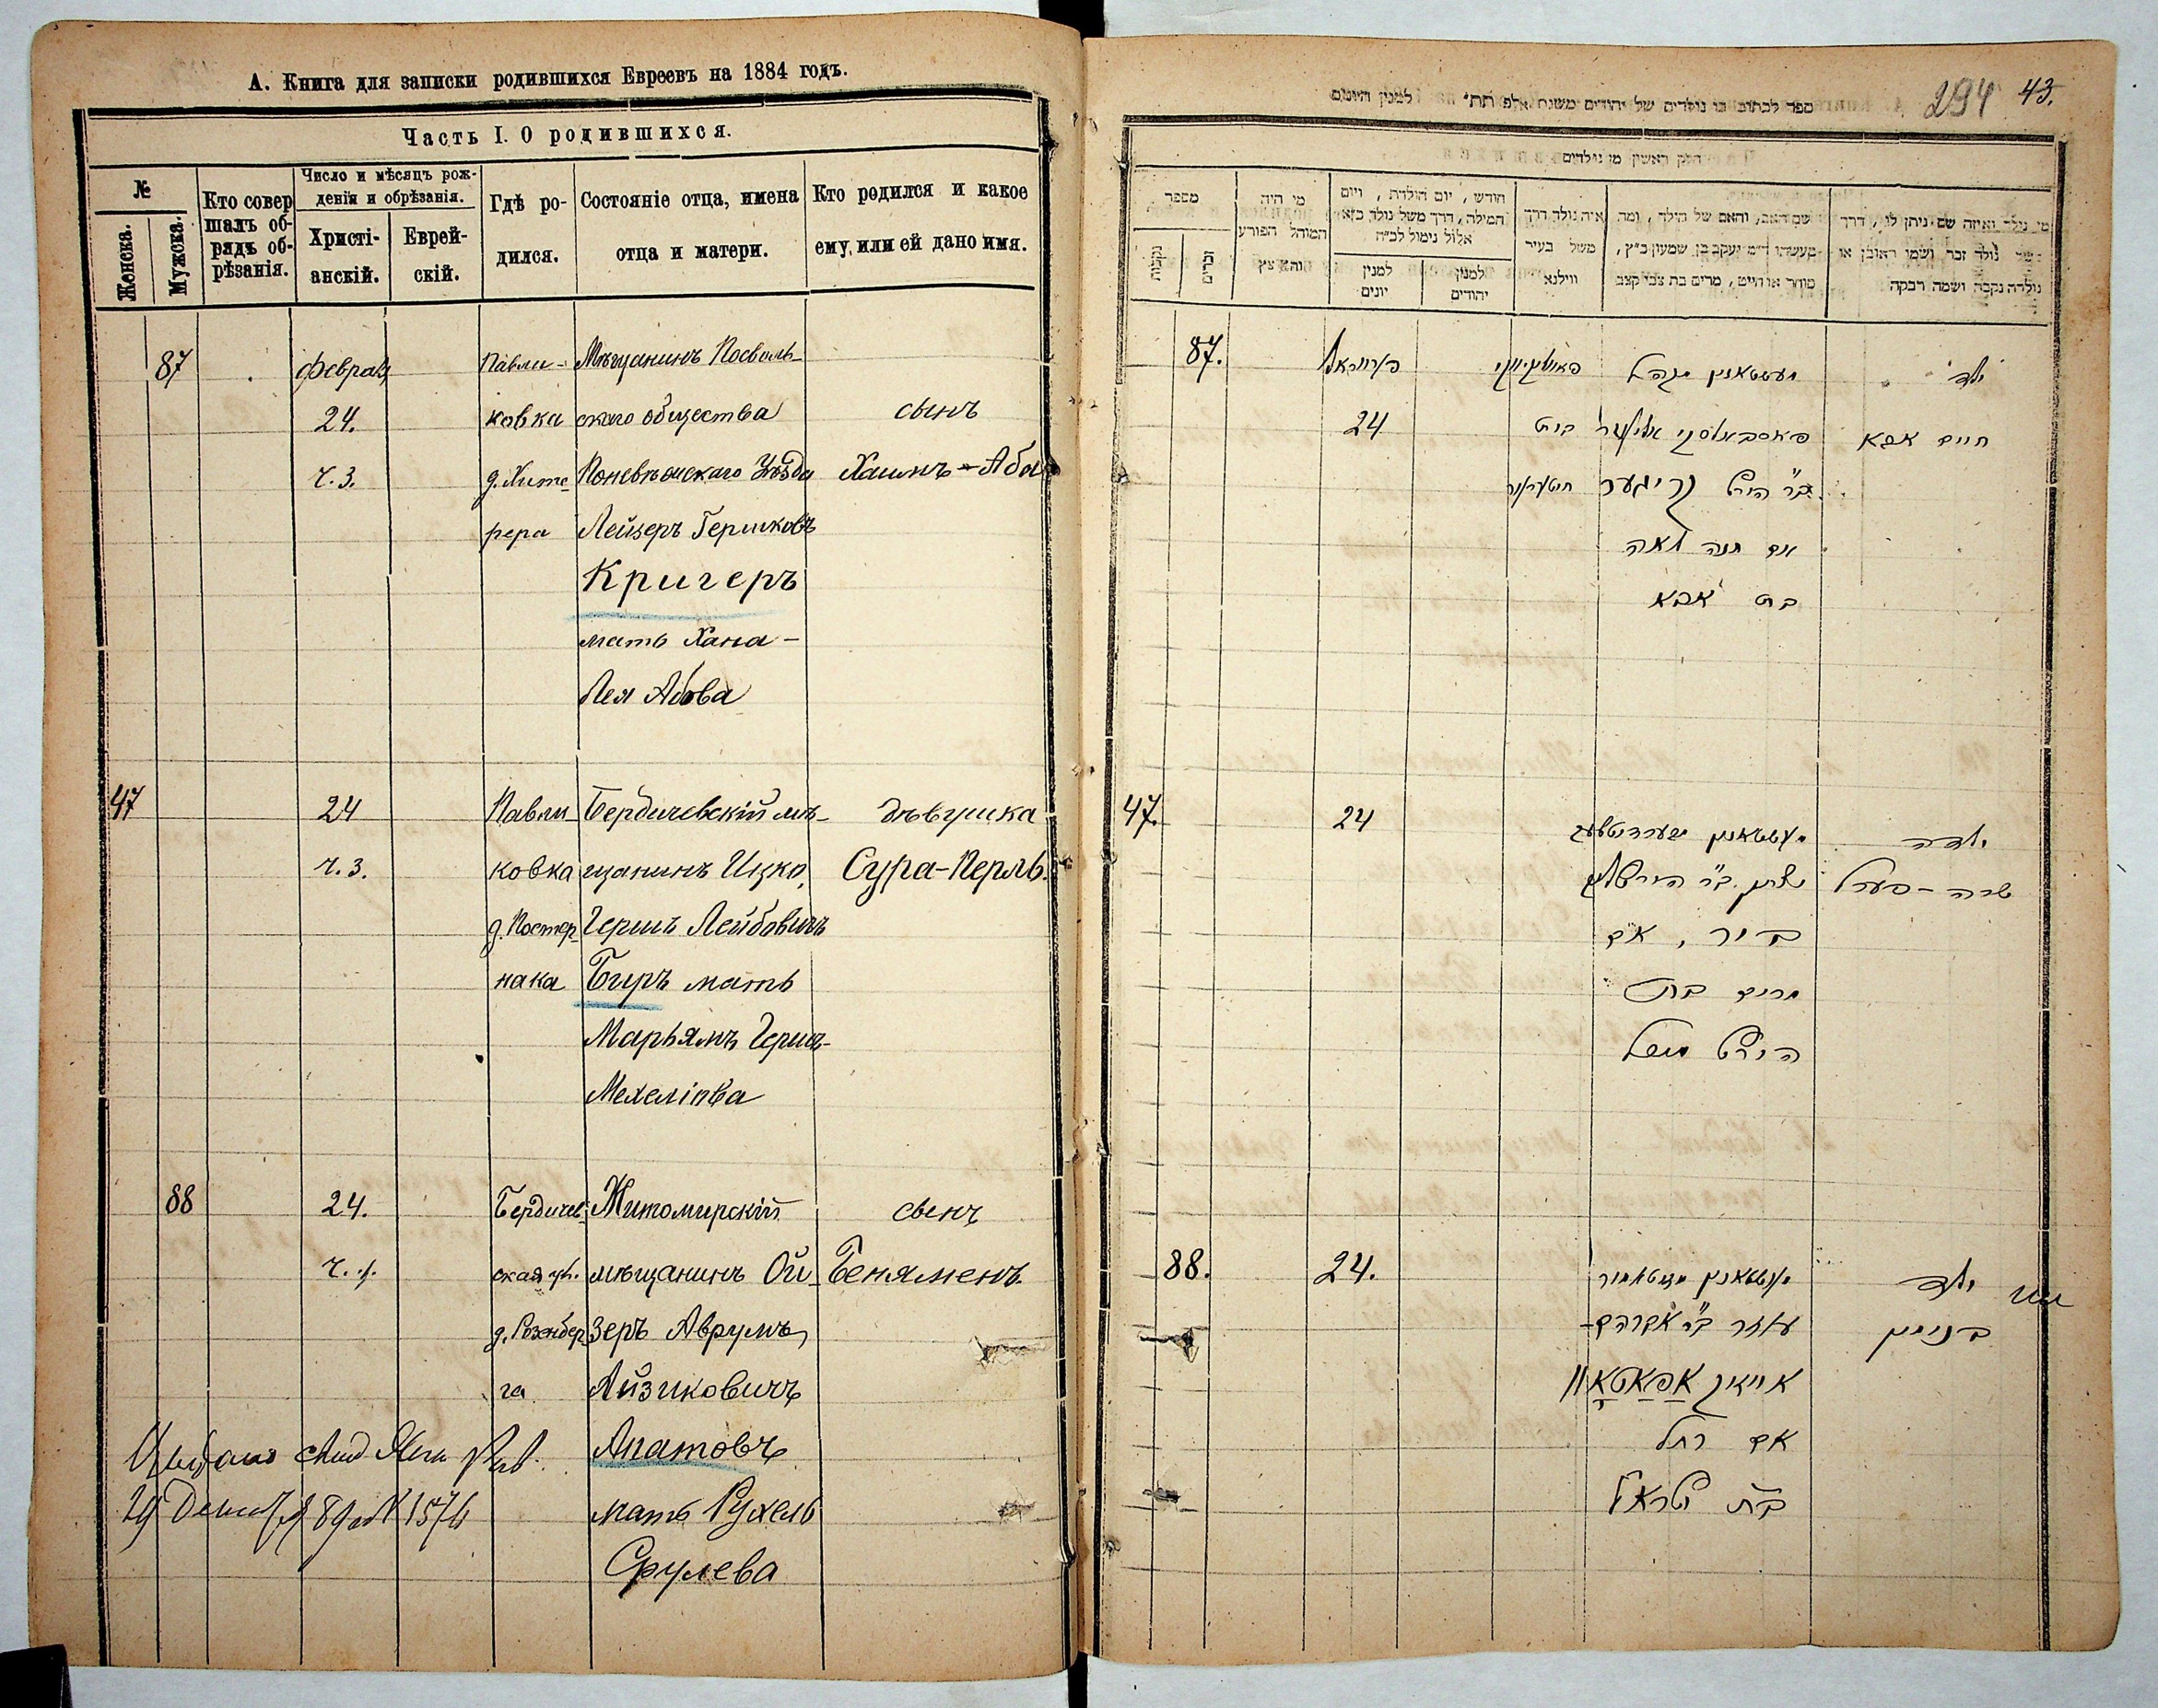 А. Книга для записки родившихся Евреевъ на 1884 годъ.
Часть I. О родившихся.
№
Женска.
Мужска.
Кто совер
шалъ об-
рядъ об-
рѣзанія.
Число и мѣсяцъ рож-
денія и обрѣзанія.
Христі-
анскій.
Еврей-
скій.
Гдѣ ро-
дился.
Состояніе отца, имена
отца и матери.
Кто родился и какое
ему или ей дано имя.
87
24.
ч. 3.
Павли-
ковка
рера
Мѣщанинъ Посволь-
скаго общества
Поневѣжскаго Уѣзда
Лейзеръ Гершковъ
Кригеръ
мать Хана-
Лея Абова
сынъ
Хаимъ-Аба
47
24
ч. 3.
Павли-
ковка
д. Постер-
нака
Бердичевскій мѣ-
щанинъ Ицко,
Гершъ Лейбовичъ
Биръ мать
Марьямъ Герш-
дѣвушка
Сура-Перль.
88
24.
Бердичев-
ская ул.
д. Розенбер
га
Житомирскій
мѣщанинъ Ой-
зеръ Аврумъ,
Айзиковичъ
Апатовъ
мать Рухель
Срулева
сынъ
Бенямень.
294 43.
ספר לכתוב בו נולדים של יהודים משנת אלפ תת״ למנין היונים
חלק ראשון מן נולדים
מספר
נקבות
זכרים
מי היה
המוהל הפורע
והמוצץ
חודש, יום הולדת, ויום
המילה, דרך משל נולד כזא
אלול נימול לכ״ה
למנין
יונים
למנין
יהודים
איה נולד דרך
משל בעיר
ווילנא
שם האב, והאם של הילד, ומה
מעשהו ד״מ יעקב בן שמעון כ״ץ,
סוחר או חייט, מרים בת צבי קצב
מי נולד ואיזה שם ניתן לו, דרך
משל נולד זכר ושמו ראובן או
נולדה נקבה ושמה רבקה
87.
24
אם חנה לאה
בת אבא
ילד
חיים אבא
47.
24
ביר, אם
מרים בת
ילדה
שרה-פערל
88.
24.
אייזיק אפאטאוו
אם רחל
בת ישראל
ילד
בנימין